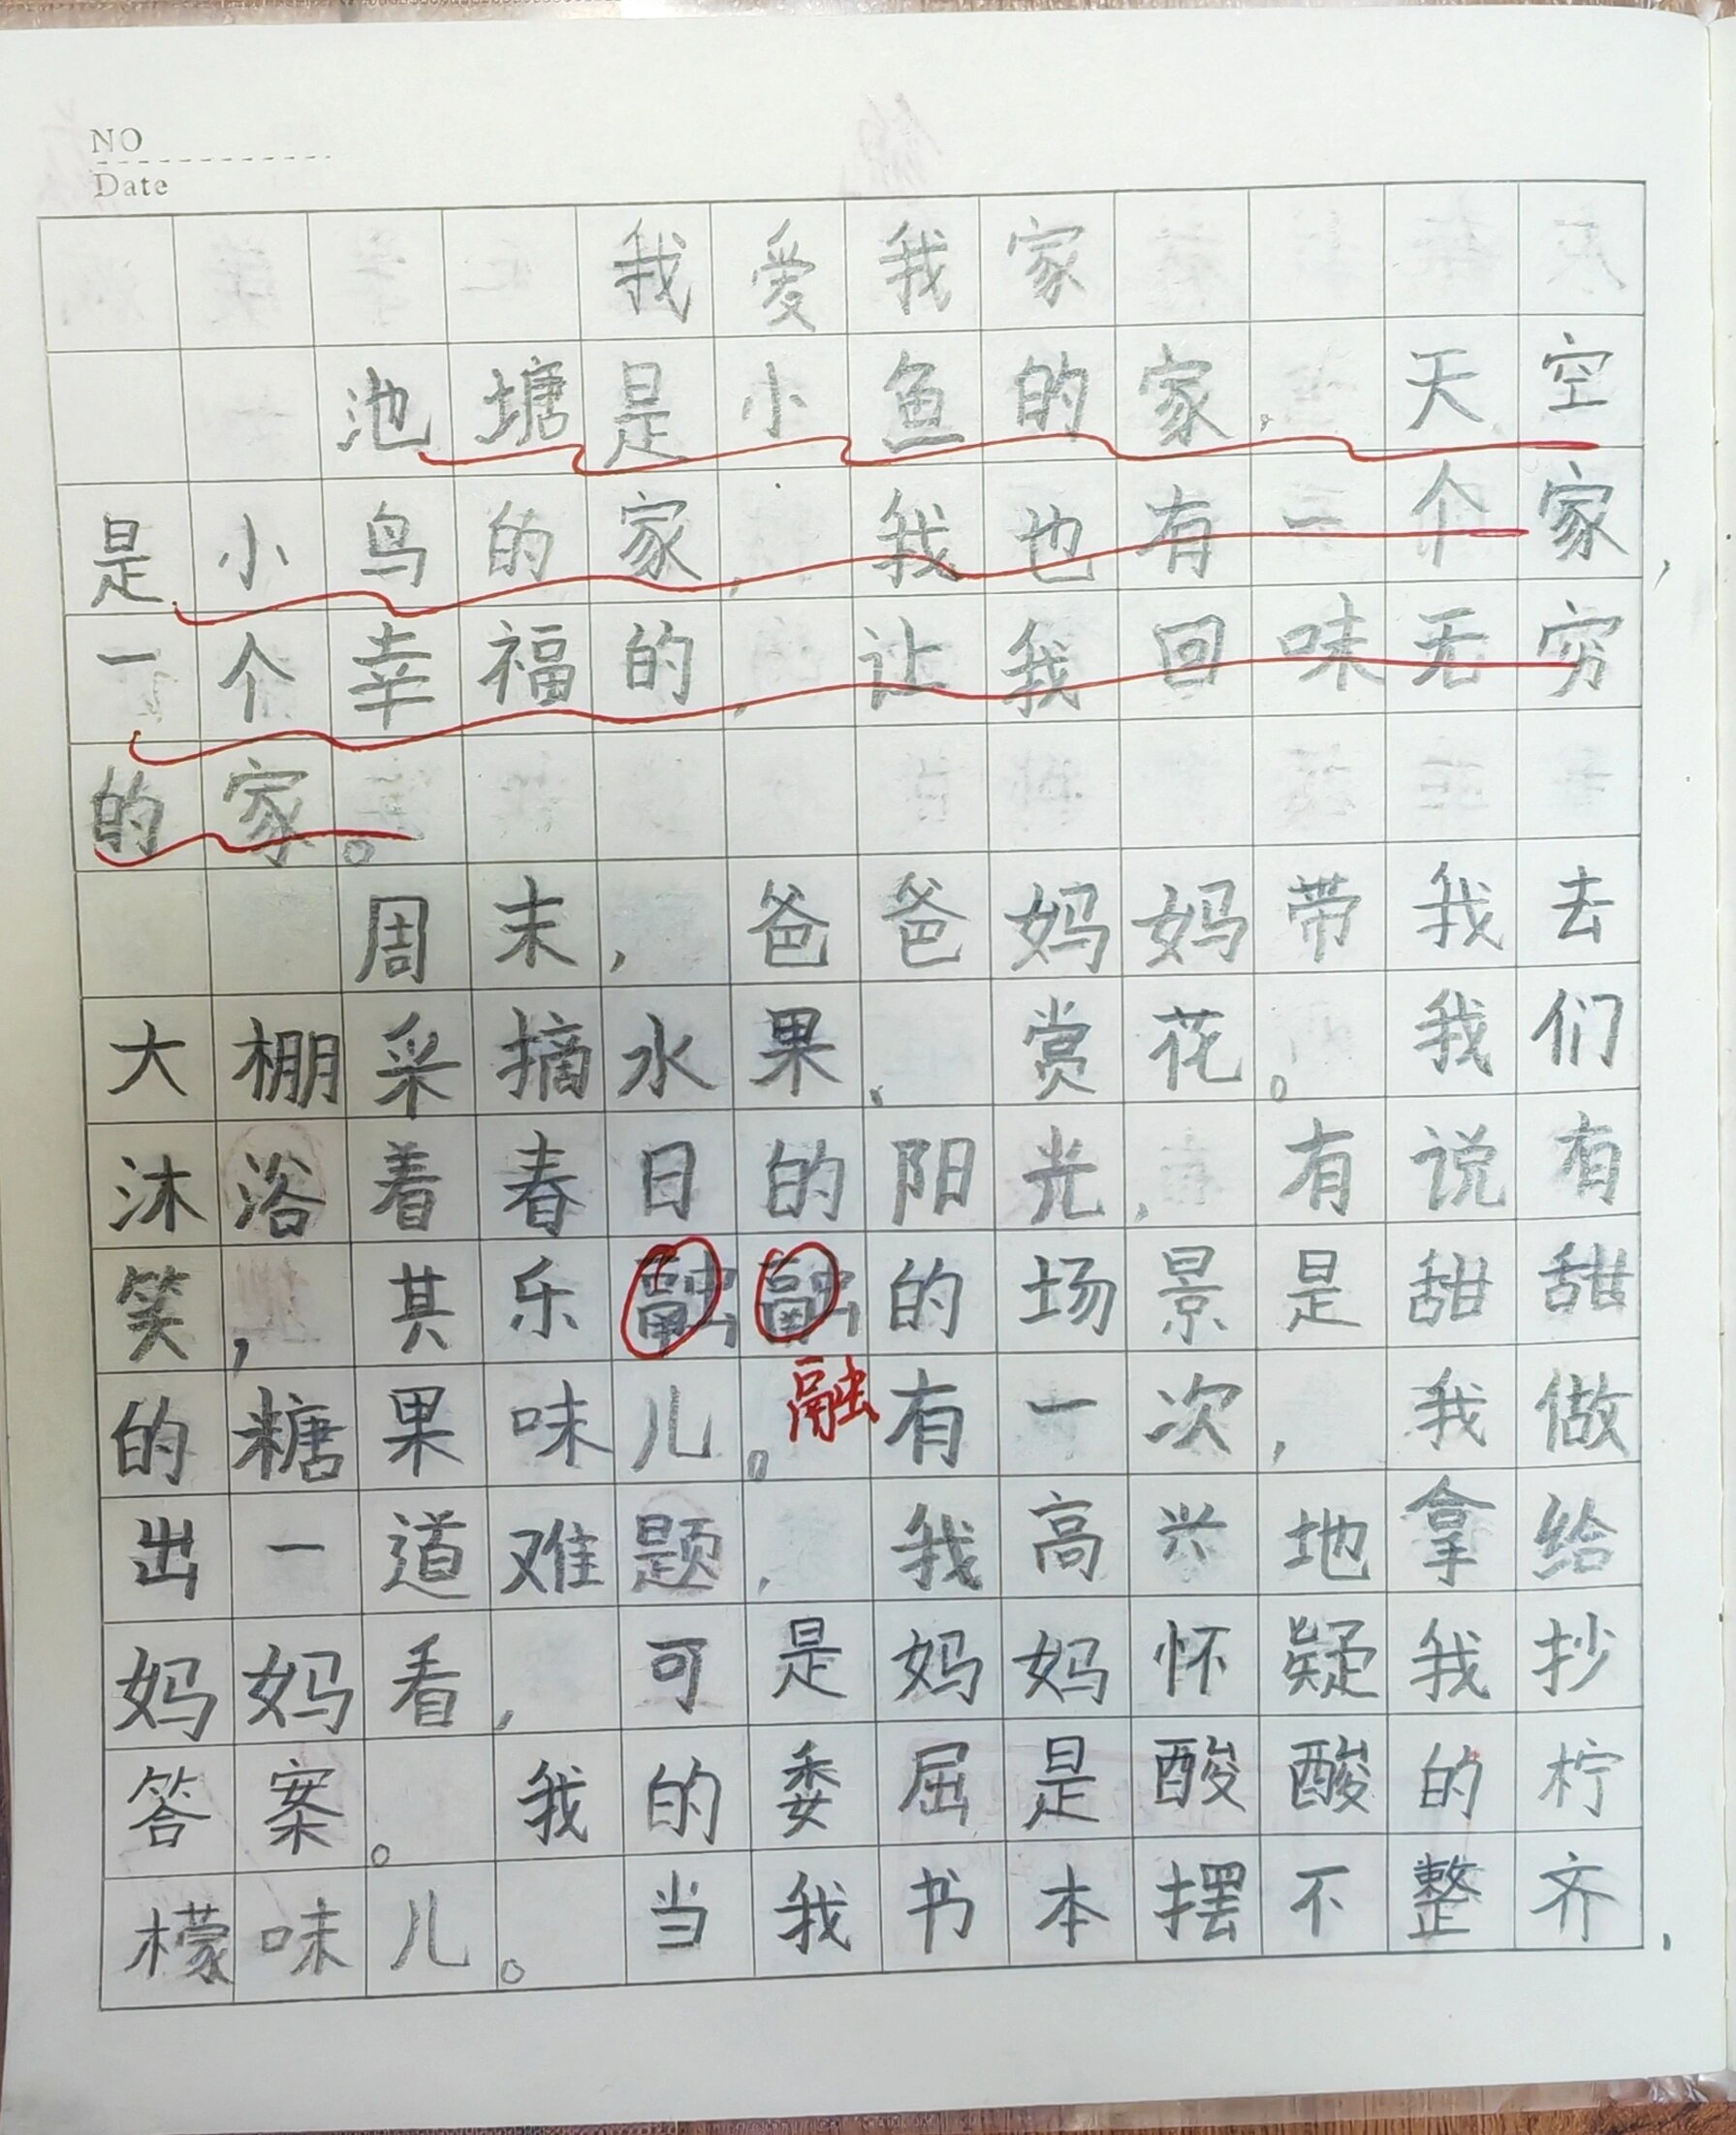 NO
Date
我爱我家
池塘是小鱼的家,天空
是小鸟的家,我也有一个家,
一个幸福的,让我回味无穷
的家。
周末,爸爸妈妈带我去
大棚采摘水果、赏花。我们
沐浴着春日的阳光,有说有
笑,其乐融融的场景是甜甜
融
的糖果味儿。有一次,我做
出一道难题,我高兴地拿给
妈妈看,可是妈妈怀疑我抄
答案。我的委屈是酸酸的柠
檬味儿。当我书本摆不整齐,